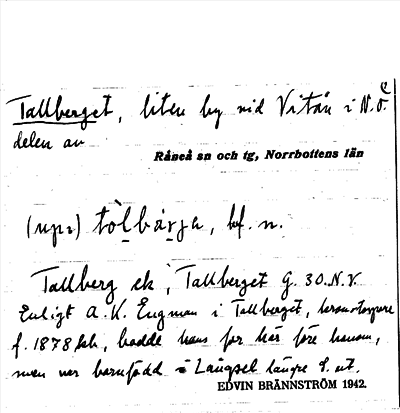 Tallberget, liten by vid Vitån i N.Ö.
delen av
Råneå sn och tg, Norrbottens län
tò̱lbá̱rja, bf. n.
Tallberg ek, Tallberget G. 30.N.V.
Enligt A. K. Engman i Tallberget,
f. 1878 hade hans far här före honom,
men var barnfödd i Långsel längre S. ut.
EDVIN BRÄNNSTRÖM 1942.